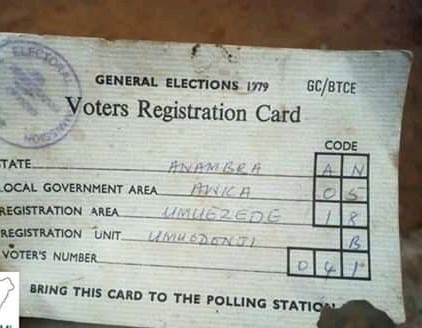 ELECTORAL
COMMISSION
GENERAL ELECTIONS 1979 GC/BTCE
Voters Registration Card
CODE
STATE ANAMBRA A N
LOCAL GOVERNMENT AREA AWKA 0 5
REGISTRATION AREA UMUEZEDE 1 8
REGISTRATION UNIT UMUODONJI B
VOTER'S NUMBER 0 4 1
BRING THIS CARD TO THE POLLING STATION